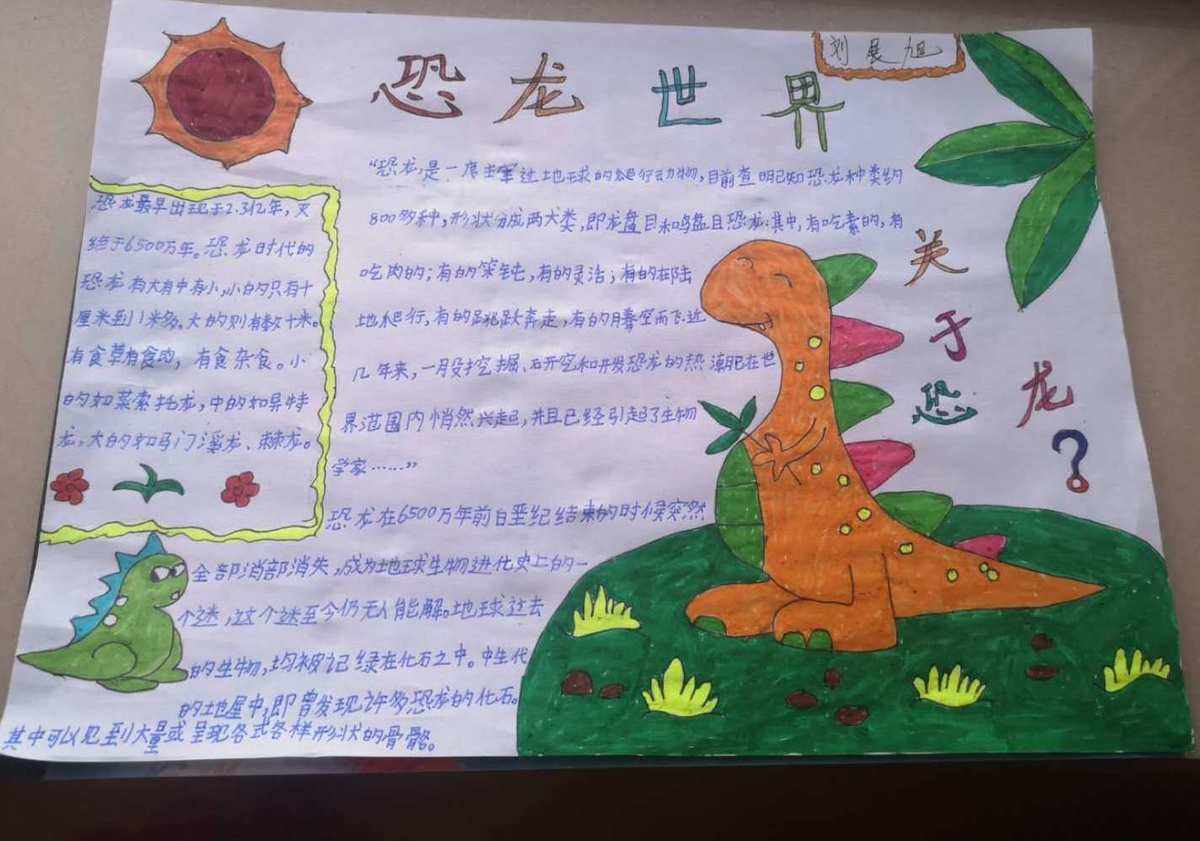 恐龙世界
刘晨旭
恐龙最早出现于2.3亿年,灭
终于6500万年。恐龙时代的
恐龙有大有中有小,小的只有十
厘米到1米多,大的则有数十米。
有食草有食肉,有食杂食。小
的如莱索托龙,中的如异特
龙,大的如马门溪龙、棘龙。
“恐龙是一度主宰过地球的爬行动物,目前查明已知恐龙种类约
800多种,形状分成两大类,即龙盘目和鸟盘目恐龙:其中,有吃素的,有
吃肉的;有的笨钝,有的灵活;有的在陆
地爬行,有的跳跃奔走,有的腾空而飞.近
几年来,一股挖掘、研究和开发恐龙的热潮在世
界范围内悄然兴起,并且已经引起了生物
学家……”
恐龙在6500万年前白垩纪结束的时候突然
全部消部消失,成为地球生物进化史上的一
个迷,这个迷至今仍无人能解。地球过去
的生物,均被记绿在化石之中。中生代
的地层中,即曾发现许多恐龙的化石。
其中可以见到大量或呈现各式各样形状的骨骼。
关于恐龙?